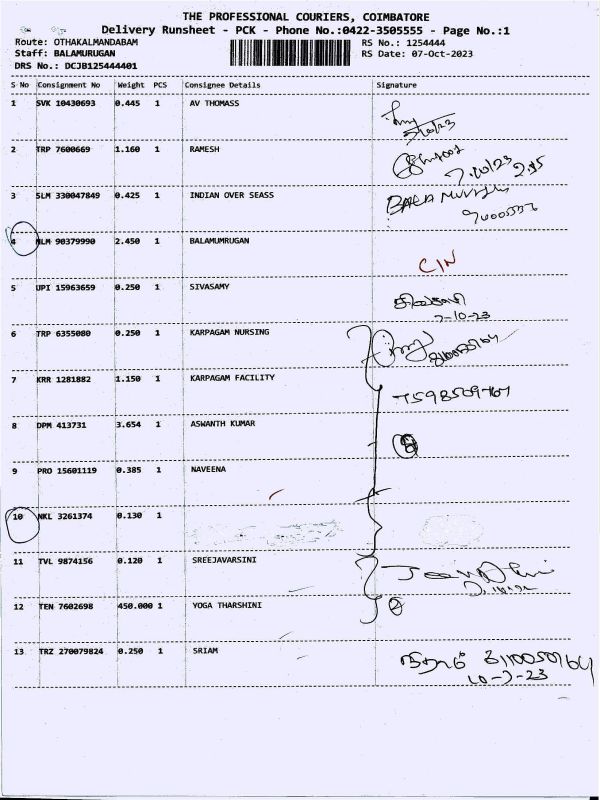 THE PROFESSIONAL COURIERS, COIMBATORE
Delivery Runsheet - PCK - Phone No.:0422-3505555 - Page No.:1
Route: OTHAKALMANDABAM RS No.: 1254444
Staff: BALAMURUGAN RS Date: 07-Oct-2023
DRS No.: DCJB125444401
S No Consignment No Weight PCS Consignee Details Signature
1 SVK 10430693 0.445 1 AV THOMASS
2 TRP 7600669 1.160 1 RAMESH
7.10/23 2.35
3 SLM 330047849 0.425 1 INDIAN OVER SEASS
4 MLM 90379990 2.450 1 BALAMUMRUGAN
CIN
5 UPI 15963659 0.250 1 SIVASAMY
7-10-23
6 TRP 6355080 0.250 1 KARPAGAM NURSING
7 KRR 1281882 1.150 1 KARPAGAM FACILITY
7598509767
8 DPM 413731 3.654 1 ASWANTH KUMAR
8
9 PRO 15601119 0.385 1 NAVEENA
10 NKL 3261374 0.130 1
11 TVL 9874156 0.120 1 SREEJAVARSINI
12 TEN 7602698 450.000 1 YOGA THARSHINI
2
13 TRZ 270079824 0.250 1 SRIAM
10-7-23